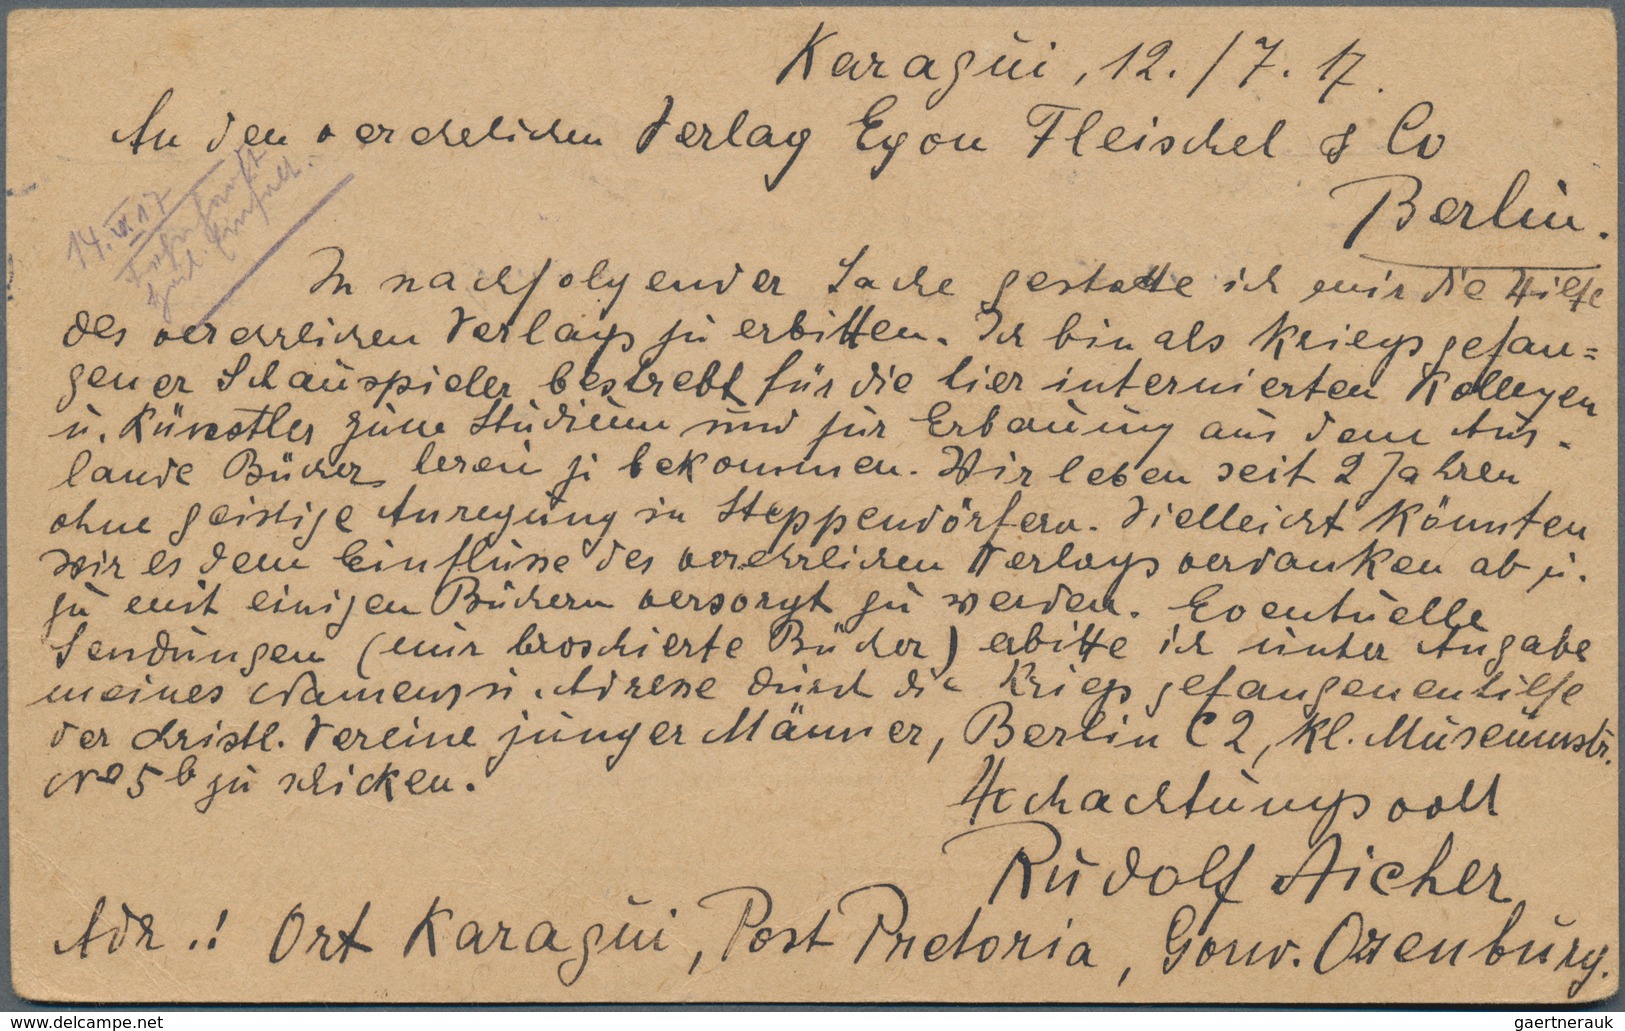 Karagúi, 12./7. 17.
An den verehrlichen Verlag Egon Fleischel & Co
Berlin.
14. IX 17
In nachfolgender Sache gestatte ich mir die Hilfe
des verehrlichen Verlags zu erbitten. Ich bin als Kriegsgefan=
gener Schauspieler bestrebt für die hier internierten Kollegen
u. Künstler zum Studium und zur Erbauung aus dem Aus-
lande Bücher herein zu bekommen. Wir leben seit 2 Jahren
ohne geistige Anregung in Steppendörfern. Vielleicht könnten
wir es dem Einflusse des verehrlichen Verlags verdanken ab u.
zu mit einigen Büchern versorgt zu werden. Eventuelle
Sendungen (nur broschierte Bücher) erbitte ich unter Angabe
meines Namens u. Adresse durch die Kriegsgefangenenhilfe
der christl. Vereine junger Männer, Berlin C2, Kl. Museumstr.
No 5b zu schicken.
Hochachtungsvoll
Rudolf Aicher
Adr.: Ort Karagúi, Post Pretoria, Gouv. Orenburg.
www.delcampe.net
gaertnerauk